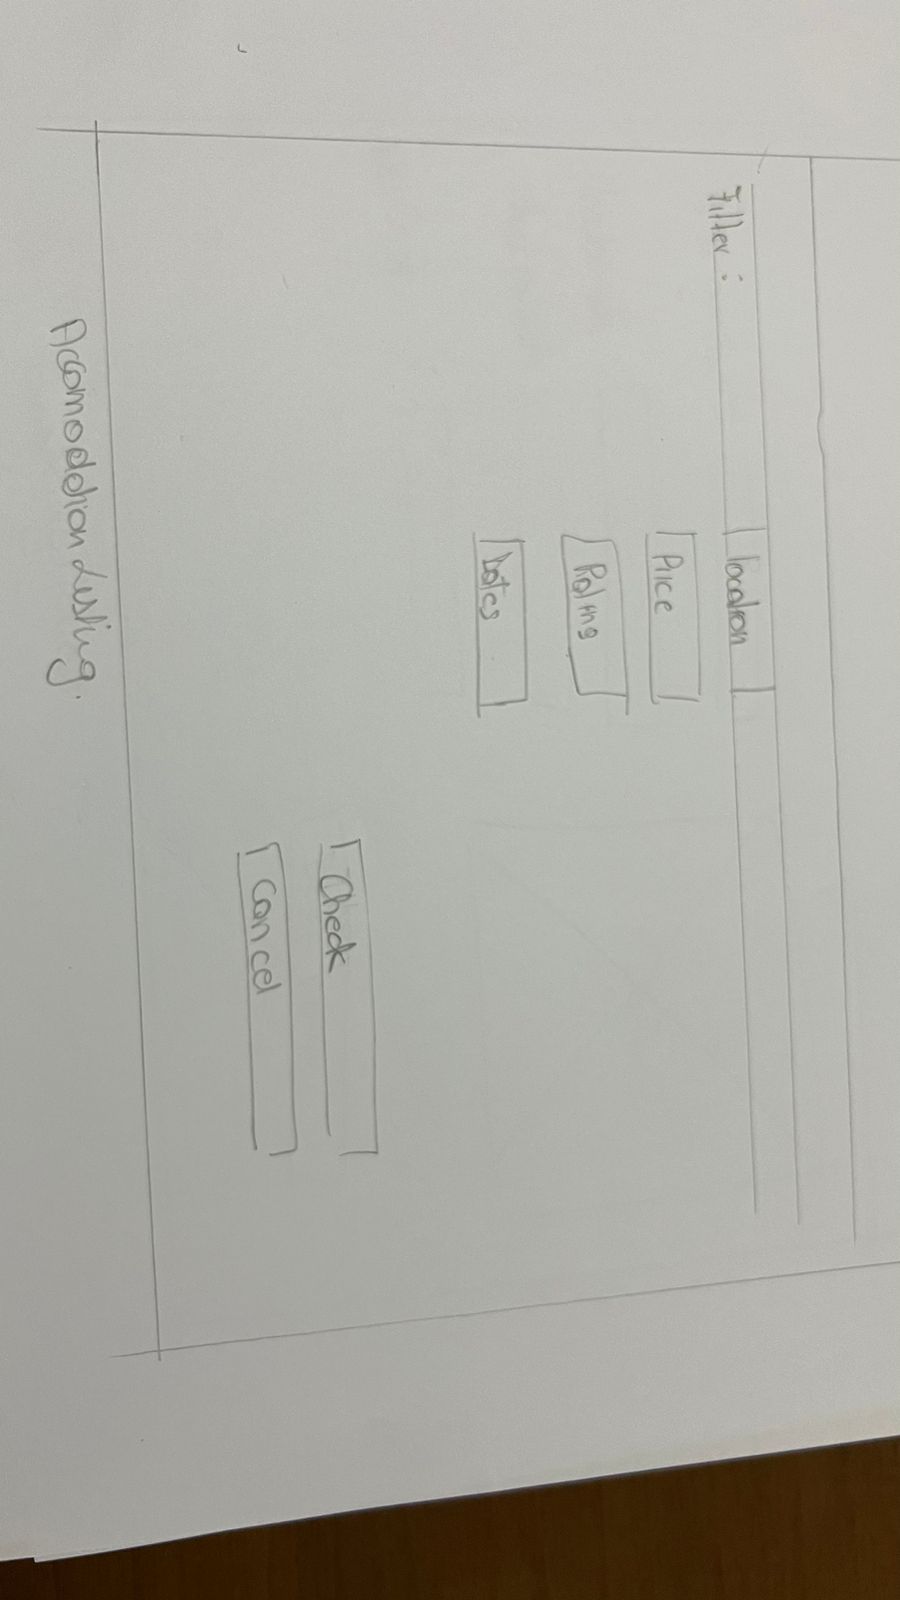 Filter :
location
Price
Rating
Dates
Check
Cancel
Accomodation Listing.